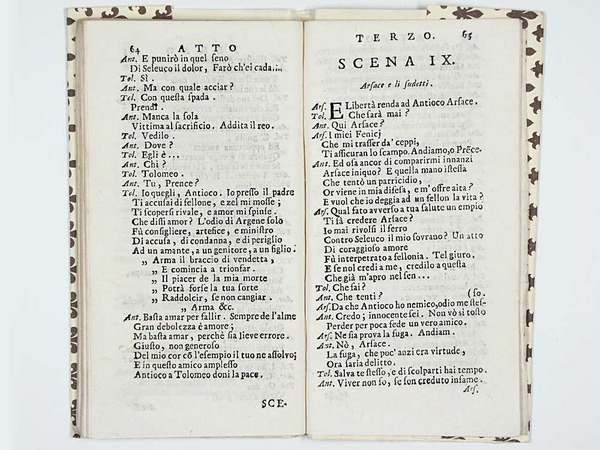 64 ATTO
Ant. E punirò in quel seno
Di Seleuco il dolor, Farò ch'ei cada....
Tol. Sì.
Ant. Ma con quale acciar?
Tol. Con questa spada.
Prendi.
Ant. Manca la sola
Vittima al sacrificio. Addita il reo.
Tol. Vedilo.
Ant. Dove?
Tol. Egli è...
Ant. Chi?
Tol. Tolomeo.
Ant. Tu, Prence?
Tol. Io quegli, Antioco. Io presso il padre
Ti accusai di fellone, e zel mi mosse;
Ti scopersi rivale, e amor mi spinse.
Che dissi amor? L'odio di Argene solo
Fù consigliere, artefice, e ministro
Di accusa, di condanna, e di periglio
Ad un amante, a un genitore, a un figlio.
„ Arma il braccio di vendetta,
„ E comincia a trionfar.
„ Il piacer de la mia morte
„ Potrà forse la tua sorte
„ Raddolcir, se non cangiar.
„ Arma &c.
Ant. Basta amar per fallir. Sempre de l'alme
Gran debolezza è amore;
Ma basta amar, perchè sia lieve errore.
Giusto, non generoso
Del mio cor cō l'esempio il tuo ne assolvo;
E in questo amico amplesso
Antioco a Tolomeo doni la pace.
SCE-
TERZO. 65
SCENA IX.
Arsace e li sudetti.
Ars. E Libertà renda ad Antioco Arsace.
Tol. Che sarà mai?
Ant. Qui Arsace?
Ars. I miei Fenicj
Che mi trasser da' ceppi,
Ti assicuran lo scampo. Andiamo, o Prēce.
Ant. Ed osa ancor di comparirmi innanzi
Arsace iniquo? E quella mano istessa
Che tentò un parricidio,
Or viene in mia difesa, e m' offre aita?
E vuol che io deggia ad un fellon la vita?
Ars. Qual fato avverso a tua salute un empio
Ti fà credere Arsace?
Io mai rivolsi il ferro
Contro Seleuco il mio sovrano? Un atto
Di coraggioso amore
Fù interpretato a fellonia. Tel giuro.
E se nol credi a me, credilo a questa
Che già m'apro nel sen...
Tol. Che fai?
Ant. Che tenti? (so.
Ars. Da che Antioco ho nemico, odio me stes-
Ant. Credo; innocente sei. Non vò sì tosto
Perder per poca fede un vero amico.
Ars. Ne sia prova la fuga. Andiam.
Ant. Nò, Arsace.
La fuga, che poc' anzi era virtude,
Ora saria delitto.
Tol. Salva te stesso, e di scolparti hai tempo.
Ant. Viver non so, se son creduto infame.
Ars.